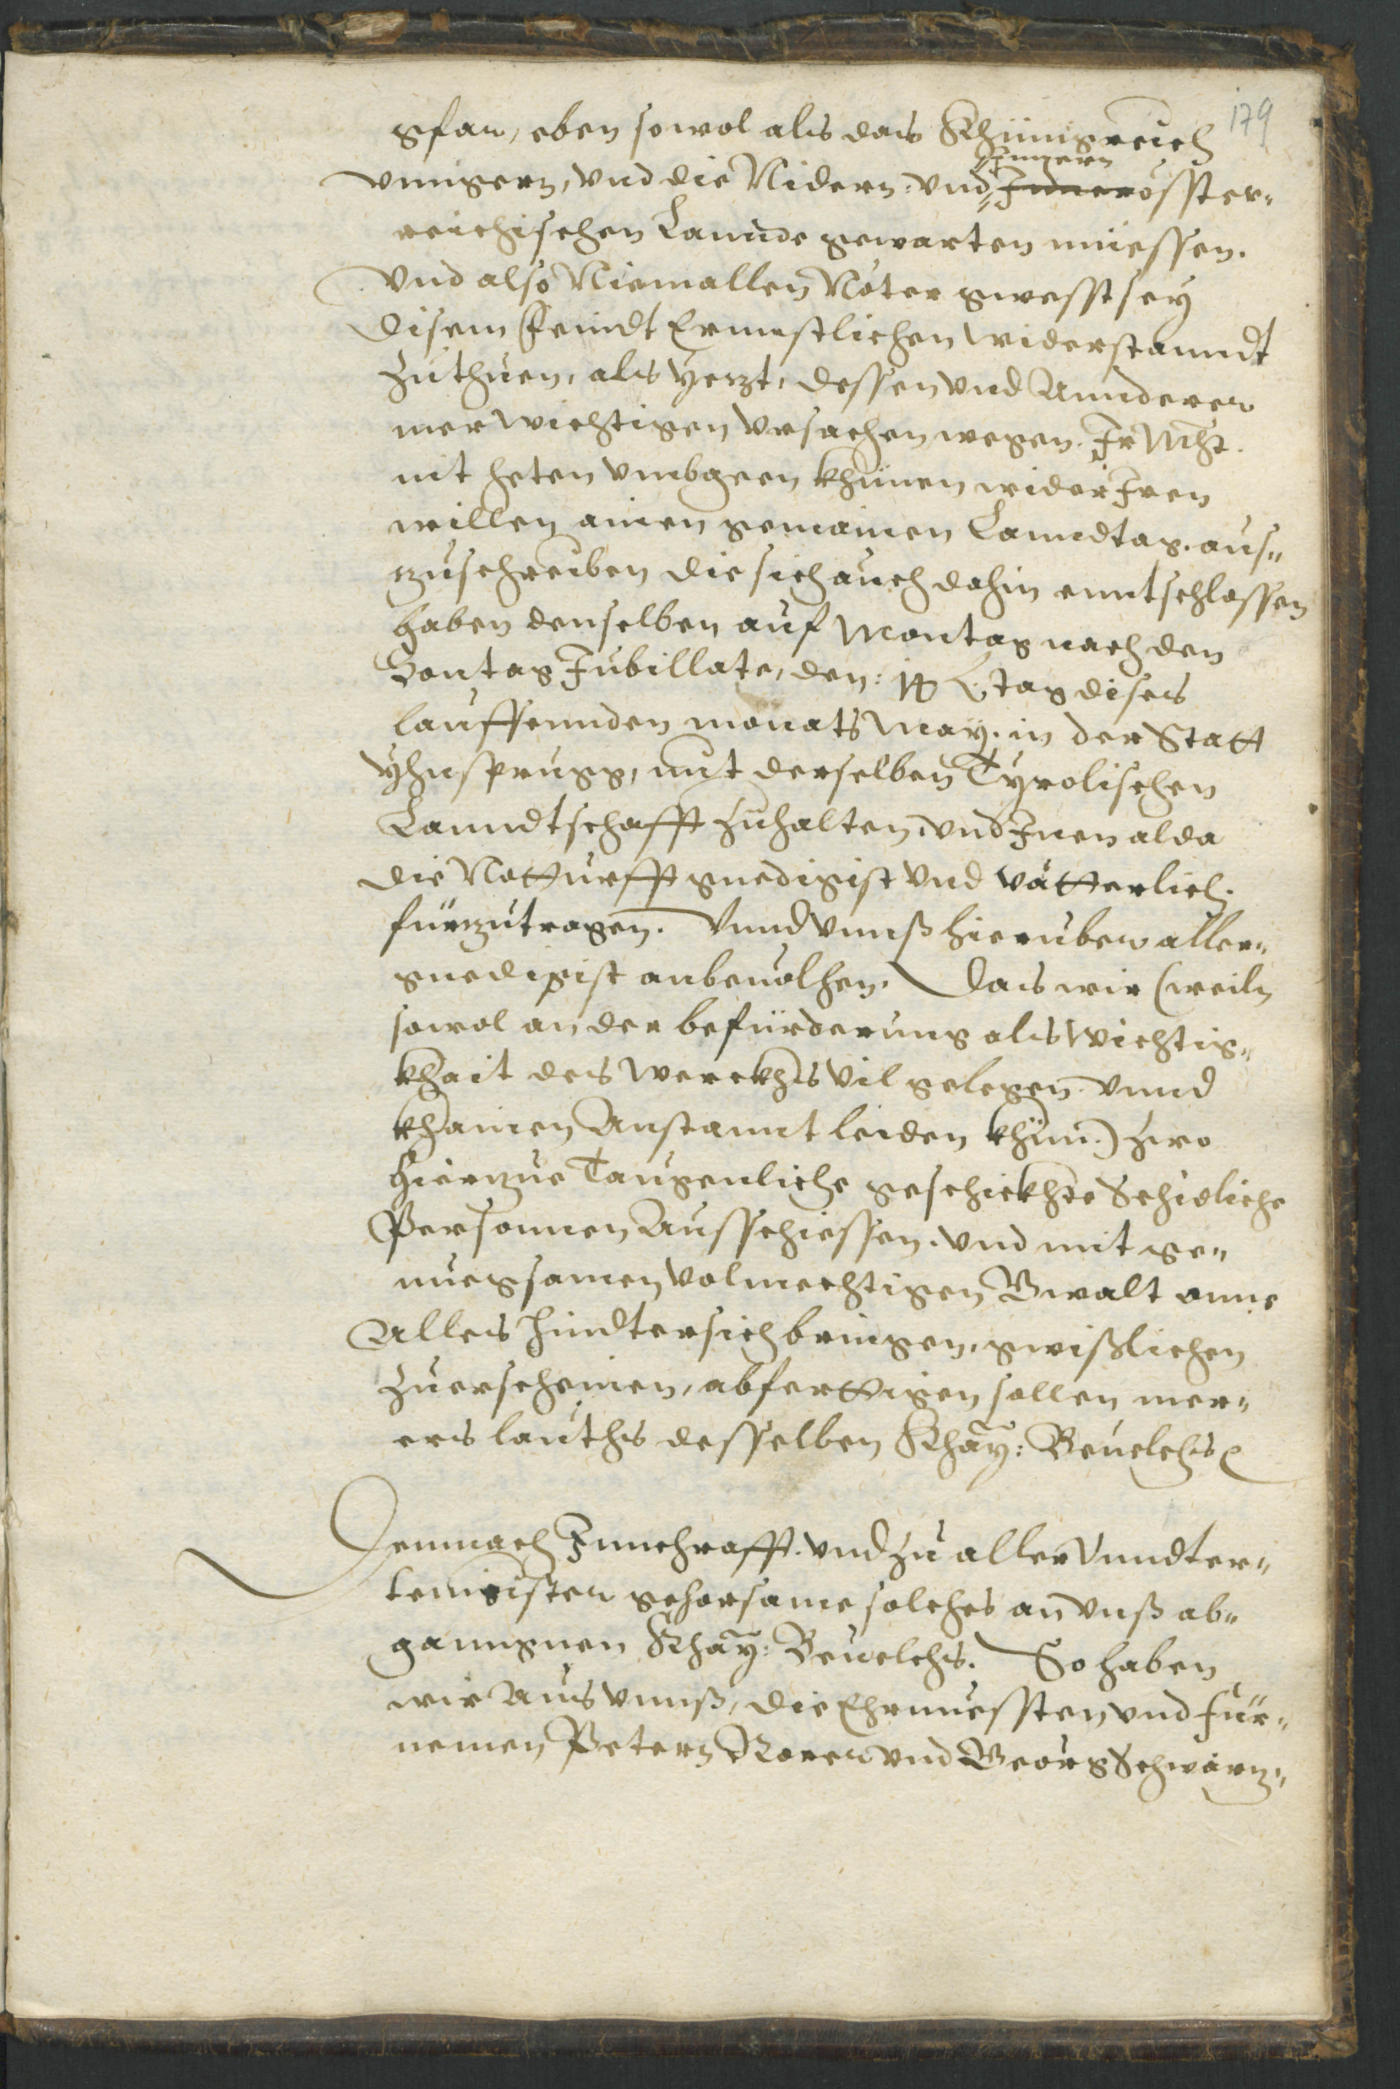 179
gfar, eben sowol als das Khünigreich
Innnern
vnngern, vnd die Nidern: vnd Inner össter„
reichischen Lannde gewarten müessen.
Vnd also Niemallen Nöter gwesst sey
disem Feindt Ernnstlichen widerstanndt
zuthuen, als yetzt, dessen vnd Annderer
mer wichtigen vrsachen wegen. Ir Mht.
nit heten vmbgeen khünen wider Iren
willen ainen gemainen Lanndtag. aus„
zuschreiben die sich auch dahin enntschlossen
haben denselben auf Montag nach den
Sontag Jubillate, den: tag dises
lauffennden monats May. in der Statt
Yhnsprugg, mit derselben Tyrolischen
Lanndtschafft zuhalten, vnd Inen alda
die Notturfft gnedigist vnd vätterlich.
fürzutragen. Vnnd vnnß hierüber aller„
gnedigist anbeuolhen. Das wir (weiln
sowol an der befürderung als wichtig„
khait des werckhs vil gelegen. vnnd
khainen Anstannt leiden khünn.) zwo
hierzue Taugenliche geschickhte Schidliche
Personnen Ausschiessen. vnd mit ge„
nuegsamen volmechtigen Gwalt onne
Alles hindtersichbringen, gwißlichen
zuerscheinen, abferttigen sollen mer„
ers lauths desselben Khay: Beuelchs
Demnach Innchrafft. vnd zu aller vnndter„
tenigister gehorsame solches an vnß ab„
ganngnen Khay: Beuelchs. So haben
wir Aus vnnß, die Ehrnuessten vnd für„
nemen Petern Rorer vnd Georg Schwärz„